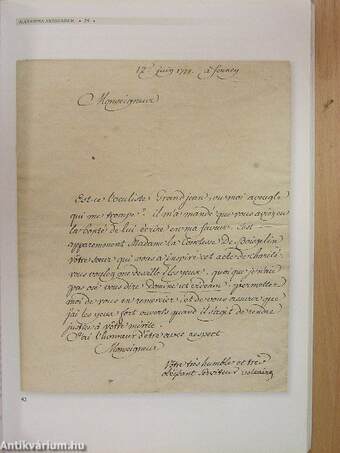 ALEXANDRA • 54 •
12e juin 1771 à ferney
Monseigneur
Est-ce l'oculiste Grandjean, ou moi aveugle
qui me trompe? il m'a mandé que vous aviez eu
la bonté de lui écrire en ma faveur. C'est
apparemment Madame la Comtesse de Boisgelin
vôtre sœur qui vous a inspiré cet acte de charité.
vous voulez que desille les yeux, quoi que je n'aie
pas osé vous dire Domine ut videam; permettez
moi de vous en remercier et de vous assurer que
j'ai les yeux fort ouverts quand il s'agit de rendre
justice à vôtre mérite.
J'ai l'honneur d'être avec respect
Monseigneur
Vôtre très humble et très
obéissant serviteur voltaire
42
Antikvárium.hu